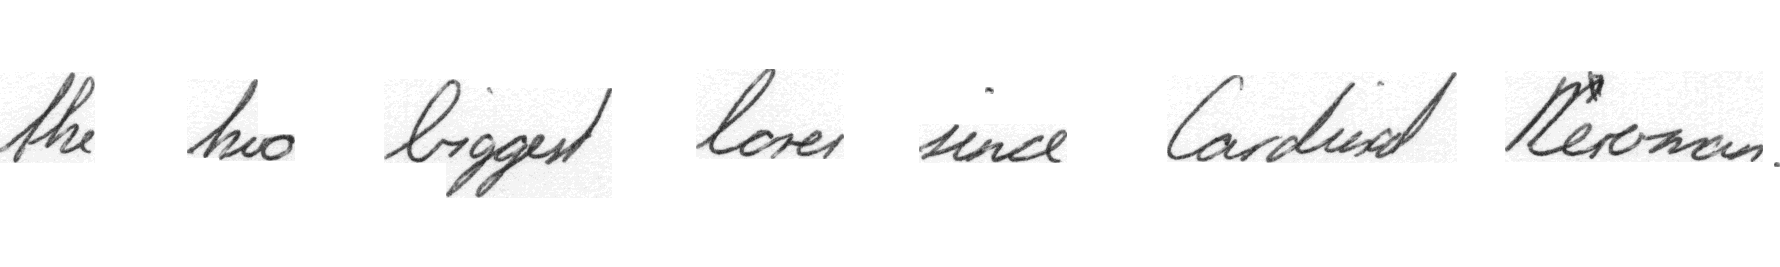 the two biggest since Cardinal Newman.